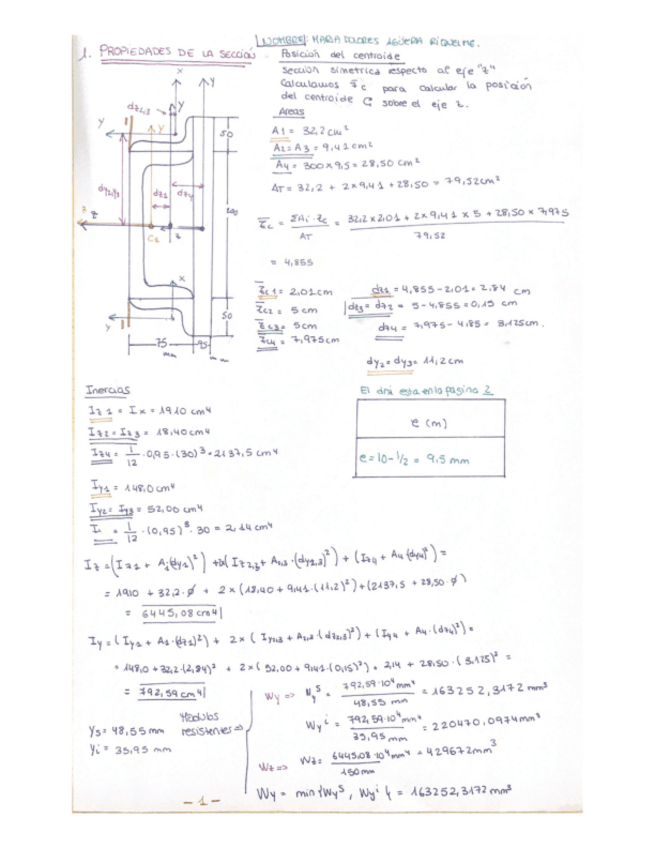 NOMBRE: MARIA DOLORES AGÜERA RIQUELME.
1. PROPIEDADES DE LA SECCIÓN.
Posición del centroide
Sección simetrica respecto al eje "z"
Calculamos z̄c para calcular la posición
del centroide G sobre el eje z.
Areas
A1 = 32,2 cm²
A2 = A3 = 9,41 cm²
A4 = 300 x 9,5 = 28,50 cm²
AT = 32,2 + 2x9,41 + 28,50 = 79,52cm²
z̄c = ΣAi·zc / AT = 32,2x2,01 + 2x9,41 x 5 + 28,50 x 7,975 / 79,52
= 4,855
z̄c1 = 2,01cm
z̄c2 = 5 cm
z̄c3 = 5cm
z̄c4 = 7,975cm
dz1 = 4,855-2,01 = 2,84 cm
dz3 = dz2 = 5-4,855 = 0,15 cm
dz4 = 7,975 - 4,85 = 3,125cm.
dy2 = dy3 = 11,2cm
x
y
dz2,3
y
y
50
dy2,3
dz1
dz4
z
C1
200
x
y
50
75
95
mm
mm
Inercias
Iz1 = Ix = 1910 cm4
Iz2 = Iz3 = 18,40cm4
Iz4 = 1/12 · 0,95 · (30)³ = 2137,5 cm4
Iy1 = 148,0 cm4
Iy2 = Iy3 = 52,00 cm4
I = 1/12 · (0,95)³ · 30 = 2,14 cm4
El dni esta en la pagina 2
e (m)
e = 10 - 1/2 = 9,5 mm
Iz = (Iz1 + A1(dy1)²) + 2x(Iz2,3 + A2,3 · (dy2,3)²) + (Iz4 + A4 (dy4)²) =
= 1910 + 32,2 · ∅ + 2 x (18,40 + 9,41 · (11,2)²) + (2137,5 + 28,50 · ∅) =
= 6445,08 cm4
Iy = (Iy1 + A1 · (dz1)²) + 2x (Iy2,3 + A2,3 · (dz2,3)²) + (Iy4 + A4 · (dz4)²) =
= 148,0 + 32,2 · (2,84)² + 2x (52,00 + 9,41 · (0,15)²) + 2,14 + 28,50 · (3,125)² =
= 792,59 cm4
ys = 48,55 mm
yi = 35,95 mm
Modulos
resistentes ⇒
Wy ⇒ Wyˢ = 792,59·10⁴ mm⁴ / 48,55 mm = 163252,3172 mm³
Wyⁱ = 792,59·10⁴ mm⁴ / 35,95 mm = 220470,0974 mm³
Wz ⇒ Wz = 6445,08·10⁴ mm⁴ / 150 mm = 429672 mm³
Wy = min {Wyˢ, Wyⁱ} = 163252,3172 mm³
-1-